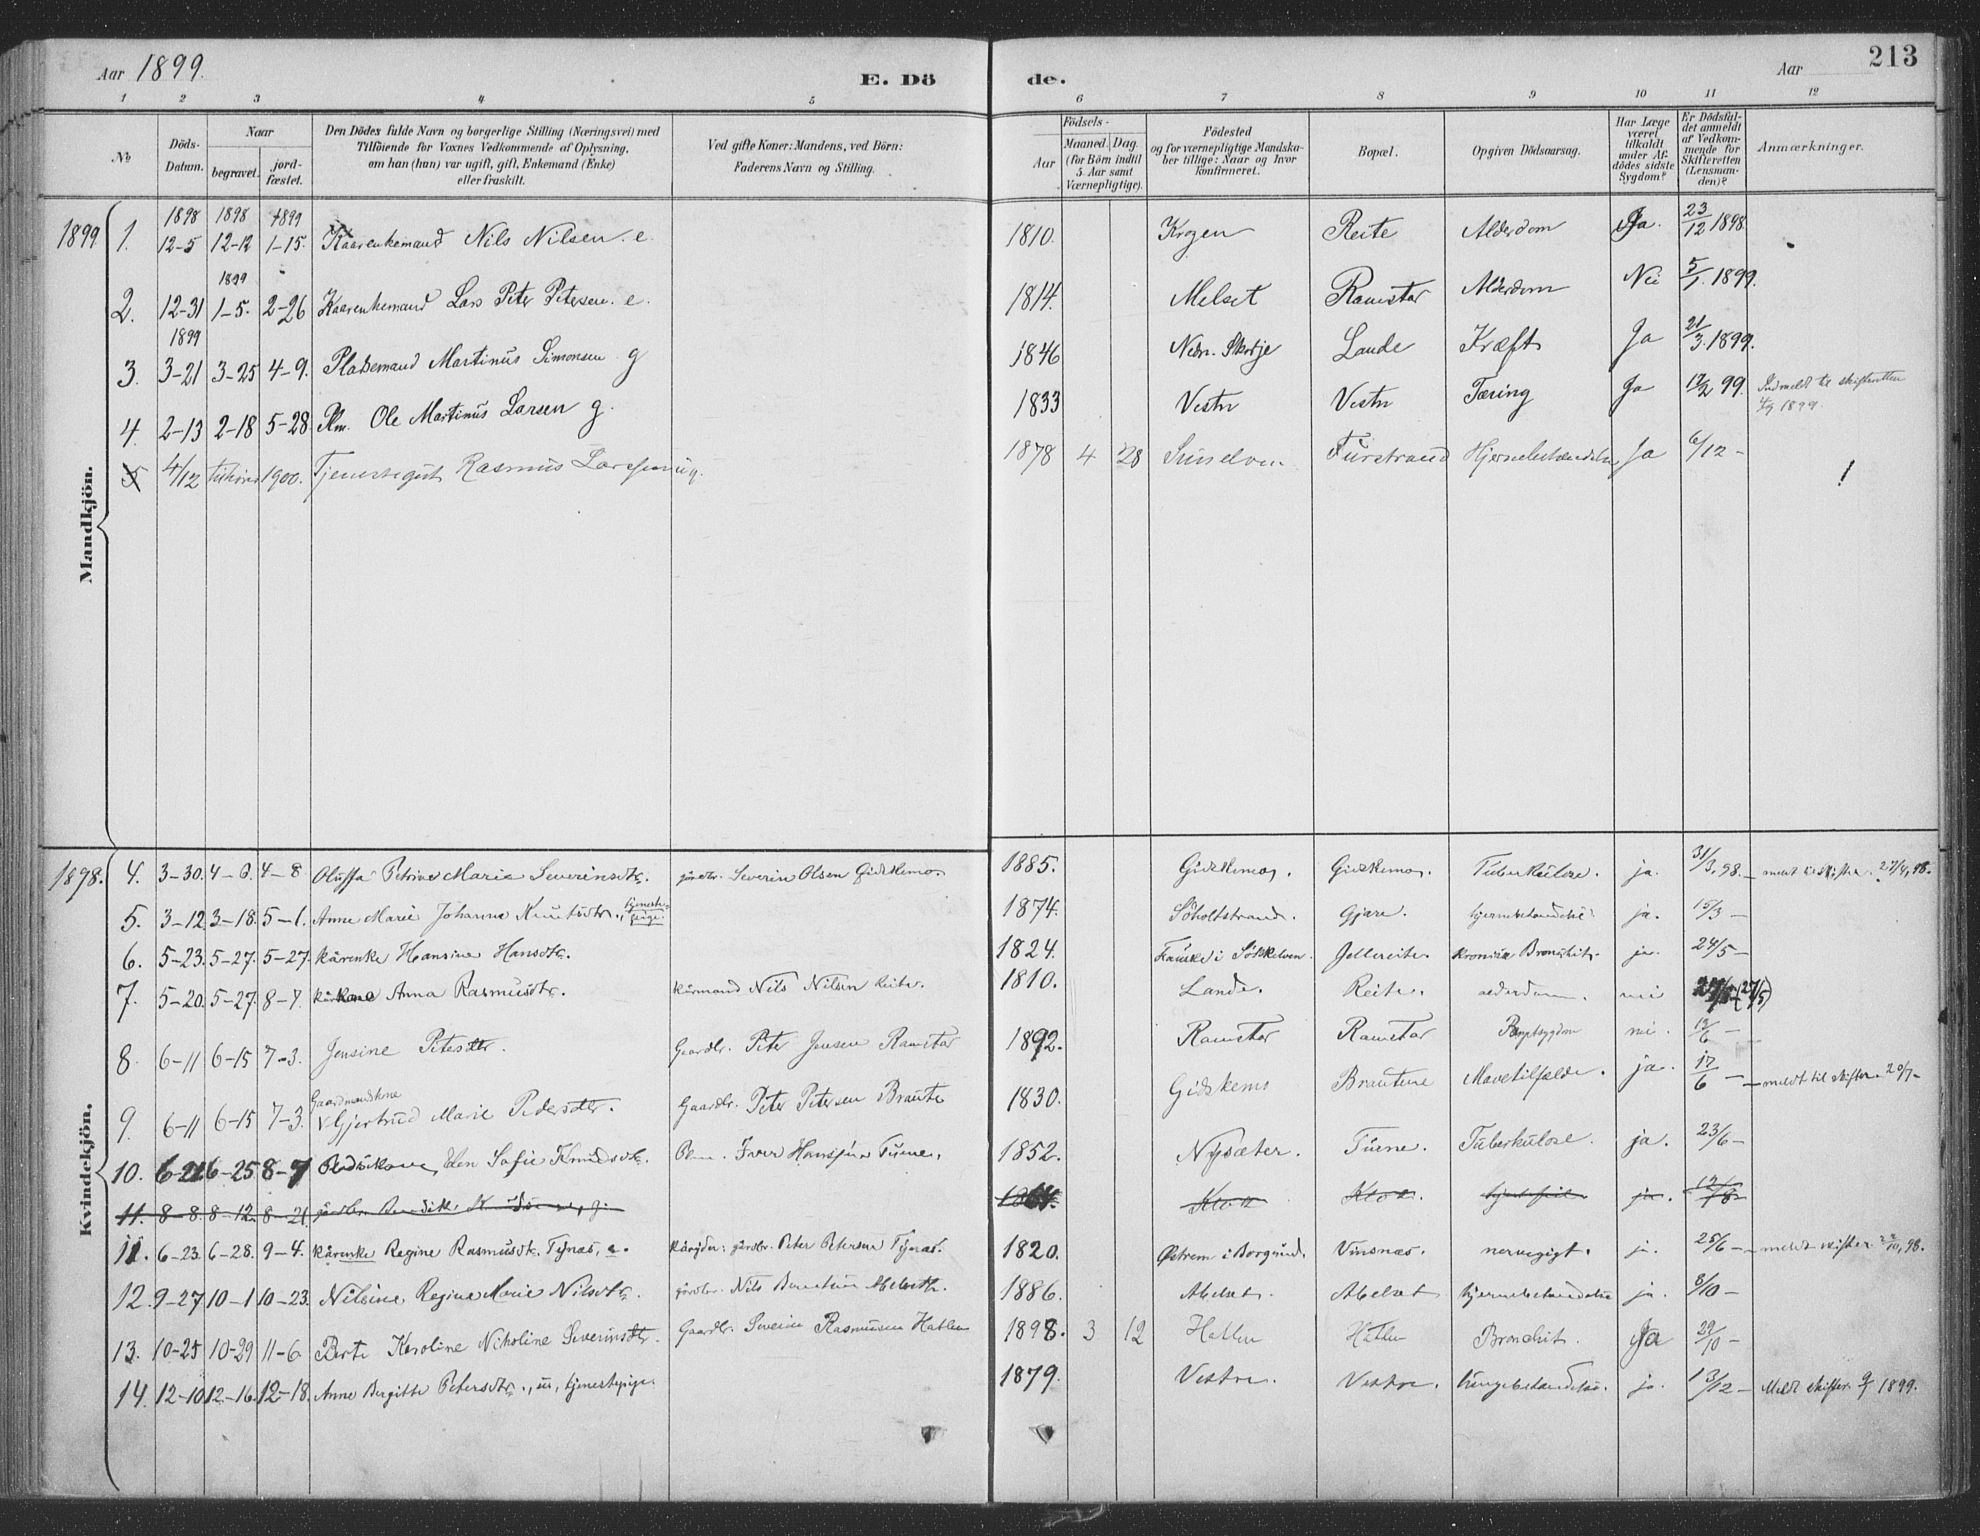 Aar 1899.
E. Dö de.
Aar
213
1 2 3 4 5 6 7 8 9 10 11 12
No
Döds-Datum.
Naar
begravet.
jord-fæstet.
Den Dödes fulde Navn og borgerlige Stilling (Næringsvei) med
Tilföiende for Voxnes Vedkommende af Oplysning,
om han (hun) var ugift, gift, Enkemand (Enke)
eller fraskilt.
Ved gifte Koner: Mandens, ved Börn:
Faderens Navn og Stilling.
Födsels-
Aar
Maaned. Dag.
(for Börn indtil
5 Aar samt
Værnepligtige).
Födested
og for værnepligtige Mandska-
ber tillige: Naar og hvor
konfirmeret.
Bopæl.
Opgiven Dödsaarsag.
Har Læge
været
tilkaldt
under Af-
dödes sidste
Sygdom?
Er Dödsfal-
det anmeldt
af Vedkom-
mende for
Skifteretten
(Lensman-
den)?
Anmærkninger.
Mandkjön.
1899 1. 1898 12-5 1898 12-12 1899 1-15. Kaarenkemand Nils Nilsen. e. 1810. Krogen Reite Alderdom Ja. 23/12 1898
2. 12-31 1899 1-5. 2-26 Kaarenkemand Lars Peter Petersen. e. 1814. Melset Ramstar Alderdom Nei 5/1. 1899.
3. 1899 3-21 3-25 4-9. Pladsemand Martinus Simonsen g 1846 Nedr. Skodje Lande Kræft Ja 21/3. 1899.
4. 2-13 2-18 5-28. Plm. Ole Martinus Larsen g. 1833 Vestre Vestre Tæring Ja 17/2 99. Indmeldt til skifteretten 1899.
5 4/12 1900. Tjenestegut Rasmus Larssen ug. 1878 4 28 Sunelven Furstrand Hjernebetændelse Ja 6/12 - !
Kvindekjön.
1898. 4. 3-30. 4-6. 4-8 Oluffa Petrine Marie Severinsdtr. gårdbr. Severin Olsen Gidskemo. 1885. Gidskemo. Gidskemo. Tuberkulose. ja. 31/3, 98. - meldt til skifter. 27/4, 98.
5. 3-12. 3-18. 5-1. Anne Marie Johanna Knutsdtr., tjeneste-pige. 1874. Søholtstrand. Gjære. hjernebetændelse. ja. 15/3 -
6. 5-23. 5-27. 5-27. kårenke Hansine Hansdtr. 1824. Fauske i Søkkelven. Jellereite. kronisk Bronchit. ja. 24/5 -
7. 5-20. 5-27. 8-7. kårkone Anna Rasmusdtr. kårmand Nils Nilsen Reite. 1810. Lande. Reite. alderdom. nei (27/5)
8. 6-11 6-15 7-3. Jensine Petersdtr. Gaardbr. Peter Jensen Ramstar 1892. Ramstar Ramstar nei. 12/6 -
9. 6-11 6-15 7-3. Gaardmandskone Gjertrud Marie Pedersdtr. Gaardbr. Peter Petersen Braute 1830. Gidskemo Brautene Mavetilfælde. ja. 17/6 - - meldt til skifter. 20/7 -
10. 6-21 6-25 8-7 Elen Sofie Knudsdtr. Plm. Iver Hansen Tuene. 1852. Nysæter. Tuene. Tuberkulose. ja. 23/6 -
11. 8-8. 8-12. 8-21. gårdbr. Bendik Knudsen, g. 1864. ja. 12/8 -
11. 6-23. 6-28. 9-4. kårenke Regine Rasmusdtr. Tynæs, e. gårdbr. Peter Petersen Tynæs. 1820. Østrem i Borgund. Vinsnæs. nervegigt. ja. 25/6 - - meldt skifter. 22/10, 98.
12. 9-27 10-1 10-23. Nilsine Regine Marie Nilsdtr. gårdbr. Nils Abelseth. 1886. Abelset. Abelset hjernebetændelse ja. 8/10 -
13. 10-25 10-29 11-6 Berte Karoline Nikoline Severinsdtr. Gaardbr. Severin Rasmussen Hatlen 1898. 3 12 Hatlen Hatlen Bronchit. Ja 29/10 -
14. 12-10 12-16. 12-18. Anne Bergitte Petersdtr., u, tjenestepige. 1879. Vestre. Vestre. lungebetændelse. ja. 13/12 - Meldt skifter. 9/1 1899.